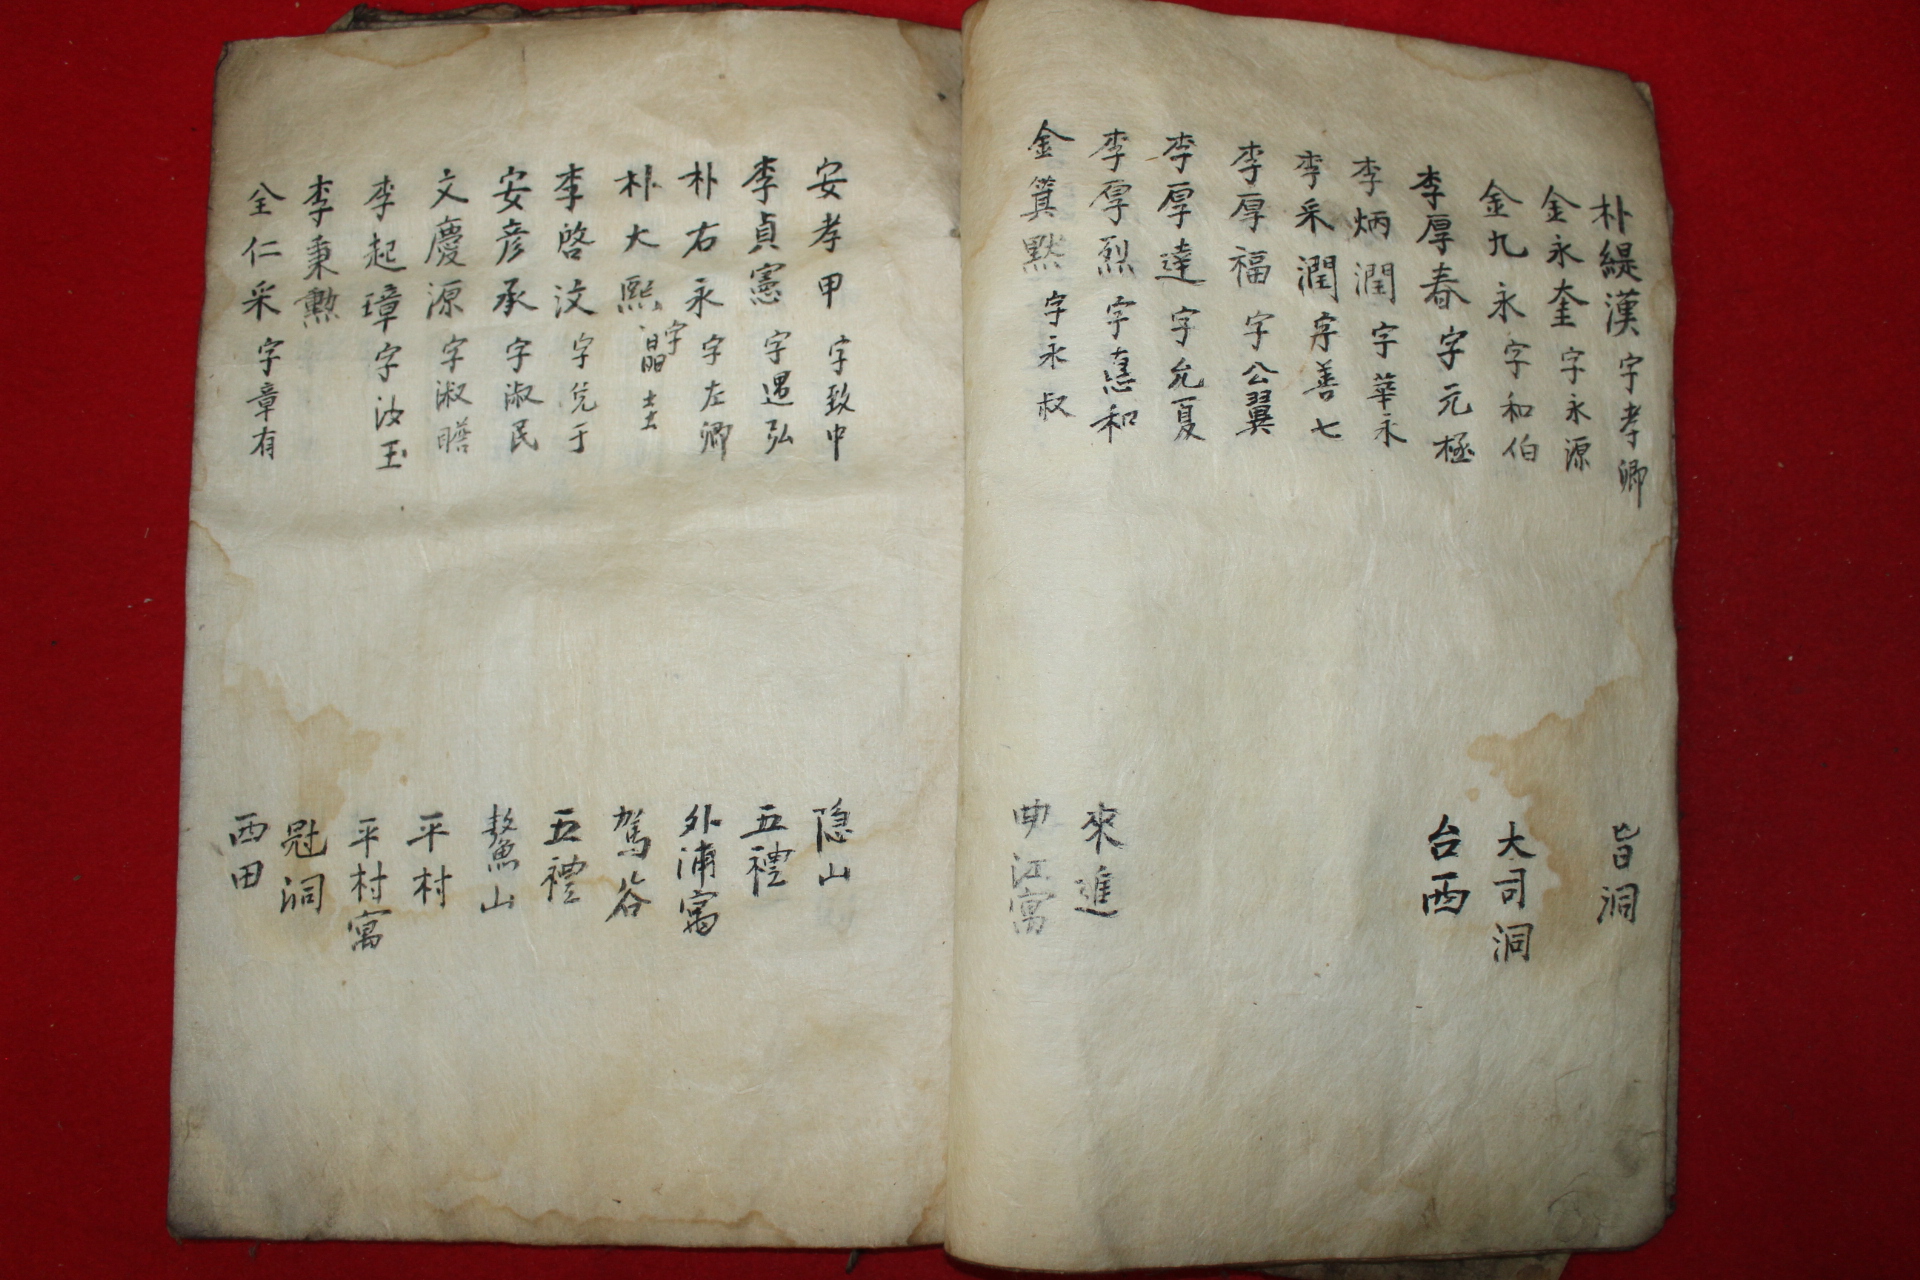 朴緹漢 字孝卿 旨洞
金永奎 字永源
金九永 字和伯 大司洞
李厚春 字元極 台西
李炳潤 字華永
李采潤 字善七
李厚福 字公翼
李厚達 字允夏
李厚烈 字憙和 來進
金箕默 字永叔 曲江寓
安孝甲 字致中 隠山
李貞憲 字遇弘 五禮
朴右永 字左卿 外浦寓
朴大熙 字晶士 駕谷
李啓汶 字兌于 五禮
安彦承 字淑民 鰲山
文慶源 字淑瞻 平村
李起璋 字汝玉 平村寓
李秉勲 冠洞
全仁采 字章有 西田